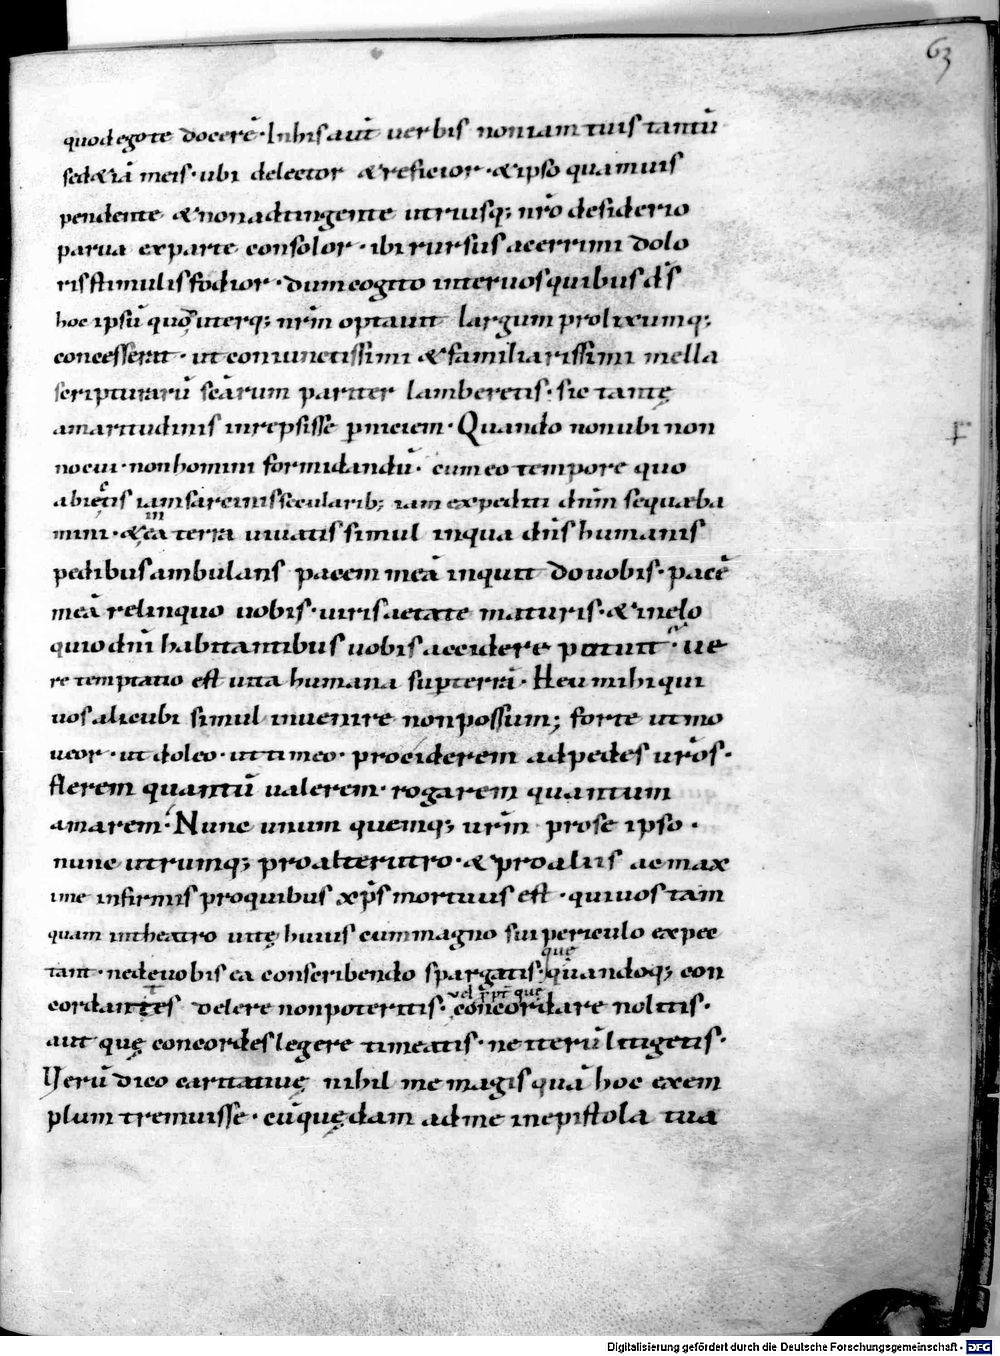 63
quod ego te docerē· In his aut̄ uerbis non iam tuis tantū
sed &iā meis· ubi delector &reficior· &ipso quamuis
pendente &non adtingente utriusq; nr̄o desiderio
parua ex parte consolor· ibi rursus acerrimi dolo
ris stimulis fodior· dum cogito inter uos quibus d̄s
hoc ipsū quod uterq; nr̄m optauit largum prolixumq;
concesserat· ut coniunctissimi &familiarissimi mella
scripturarū sc̄arum pariter lamberetis· sic tantę
amaritudinis inrepsisse p̱niciem· Quando non ubi non
nocui· non homini formidandū· cum eo tempore quo
abiectis iam sarcinis secularib; iam expediti dn̄m sequæba
mini· &in ea terra uiuatis simul in qua dn̄s humanis
pedibus ambulans pacem meā inquit do uobis· pacē
meā relinquo uobis· uiris aetate maturis· &in elo
quio dn̄i habitantibus uobis accidere potuit· ue
re temptatio est uita humana sup̱ terrā· Heu mihi qui
uos alicubi simul inuenire non possum; forte ut mo
ueor· ut doleo· ut timeo· prociderem ad pedes ur̄os·
flerem quantū ualerem· rogarem quantum
amarem· Nunc unum quemq; ur̄m pro se ipso·
nunc utrumq; pro alterutro· &pro aliis ac max
ime infirmis pro quibus xp̄s mortuus est· qui uos tam
quam in theatro uitę huius cum magno sui periculo expec
tant· ne de uobis ea conscribendo spargatis· quę quandoq; con
cordantes delere non poteritis· vel p̱pt̄ quę concordare nolitis·
aut quę concordes legere timeatis· ne iterū litigetis·
Verū dico caritati uę nihil me magis quā hoc exem
plum tremuisse· cū quędam ad me in epistola tua
Digitalisierung gefördert durch die Deutsche Forschungsgemeinschaft - DFG